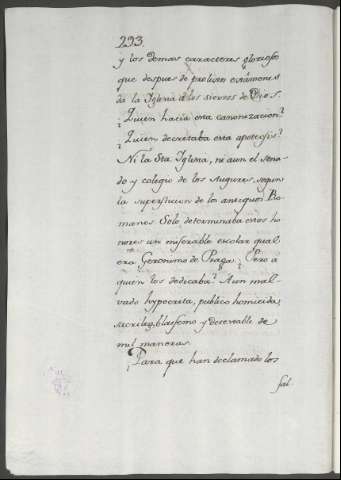 293.
y los demas caracteres gloriosos
que despues de prolixos examenes
da la Iglesia à los siervos de Dios.
¿Quien hacia esta canonizacion?
¿Quien decretaba esta apoteosis?
Ni la Sta. Iglesia, ni aun el Sena-
do y colegio de los Augures, segun
la supersticion de los antiguos Ro-
manos. Solo determinaba estos ho-
nores un miserable escolar qual
era Geronimo de Praga. ¿Pero à
quien los dedicaba? A un mal-
vado hypocrita, publico homicida,
sacrilego, blasfemo y detestable de
mil maneras.
¿Para que han declamado los
sal